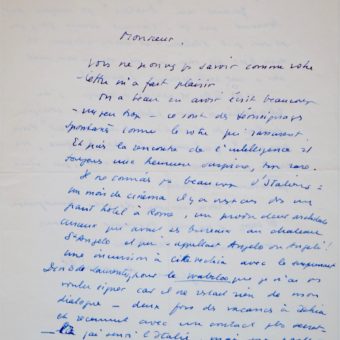 Monsieur,
Vous ne pouvez pas savoir comme votre
lettre m'a fait plaisir
on a beau en avoir écrit beaucoup
- un peu trop - ce sont des témoignages
spontanés comme le votre qui rassurent
Et puis la rencontre de l'intelligence est
toujours une heureuse surprise, bien rare.
Je ne connais pas beaucoup d'Italiens :
un mois de cinéma il y a ans dans un
petit hôtel à Rome, un
curieux qui avait ses bureaux au chateau
St Angelo et qui s'appellait Angelo ou Angeli !
une excursion à Civitavecchia avec le
De Laurentiis pour le que je n'ai pas
voulu signer car il ne restait rien de mon
dialogue - deux fois des vacances à
et récemment avec un contact plus
j'ai senti l'Italie, mais